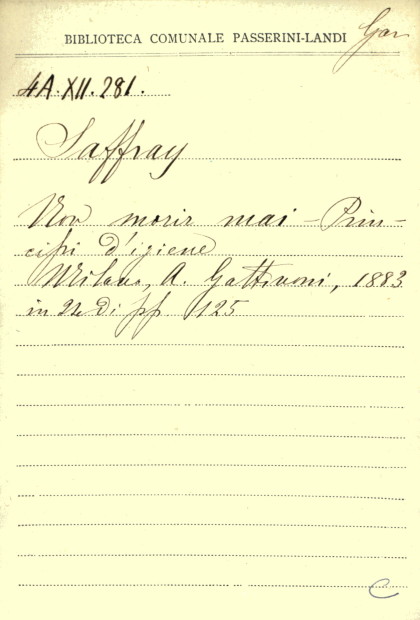 Gar
BIBLIOTECA COMUNALE PASSERINI-LANDI
4A.XII.281.
Saffray
Non morir mai - Prin-
cipi d'igiene
Milano, A. Gattinoni, 1883
in 24 di pp 125
C